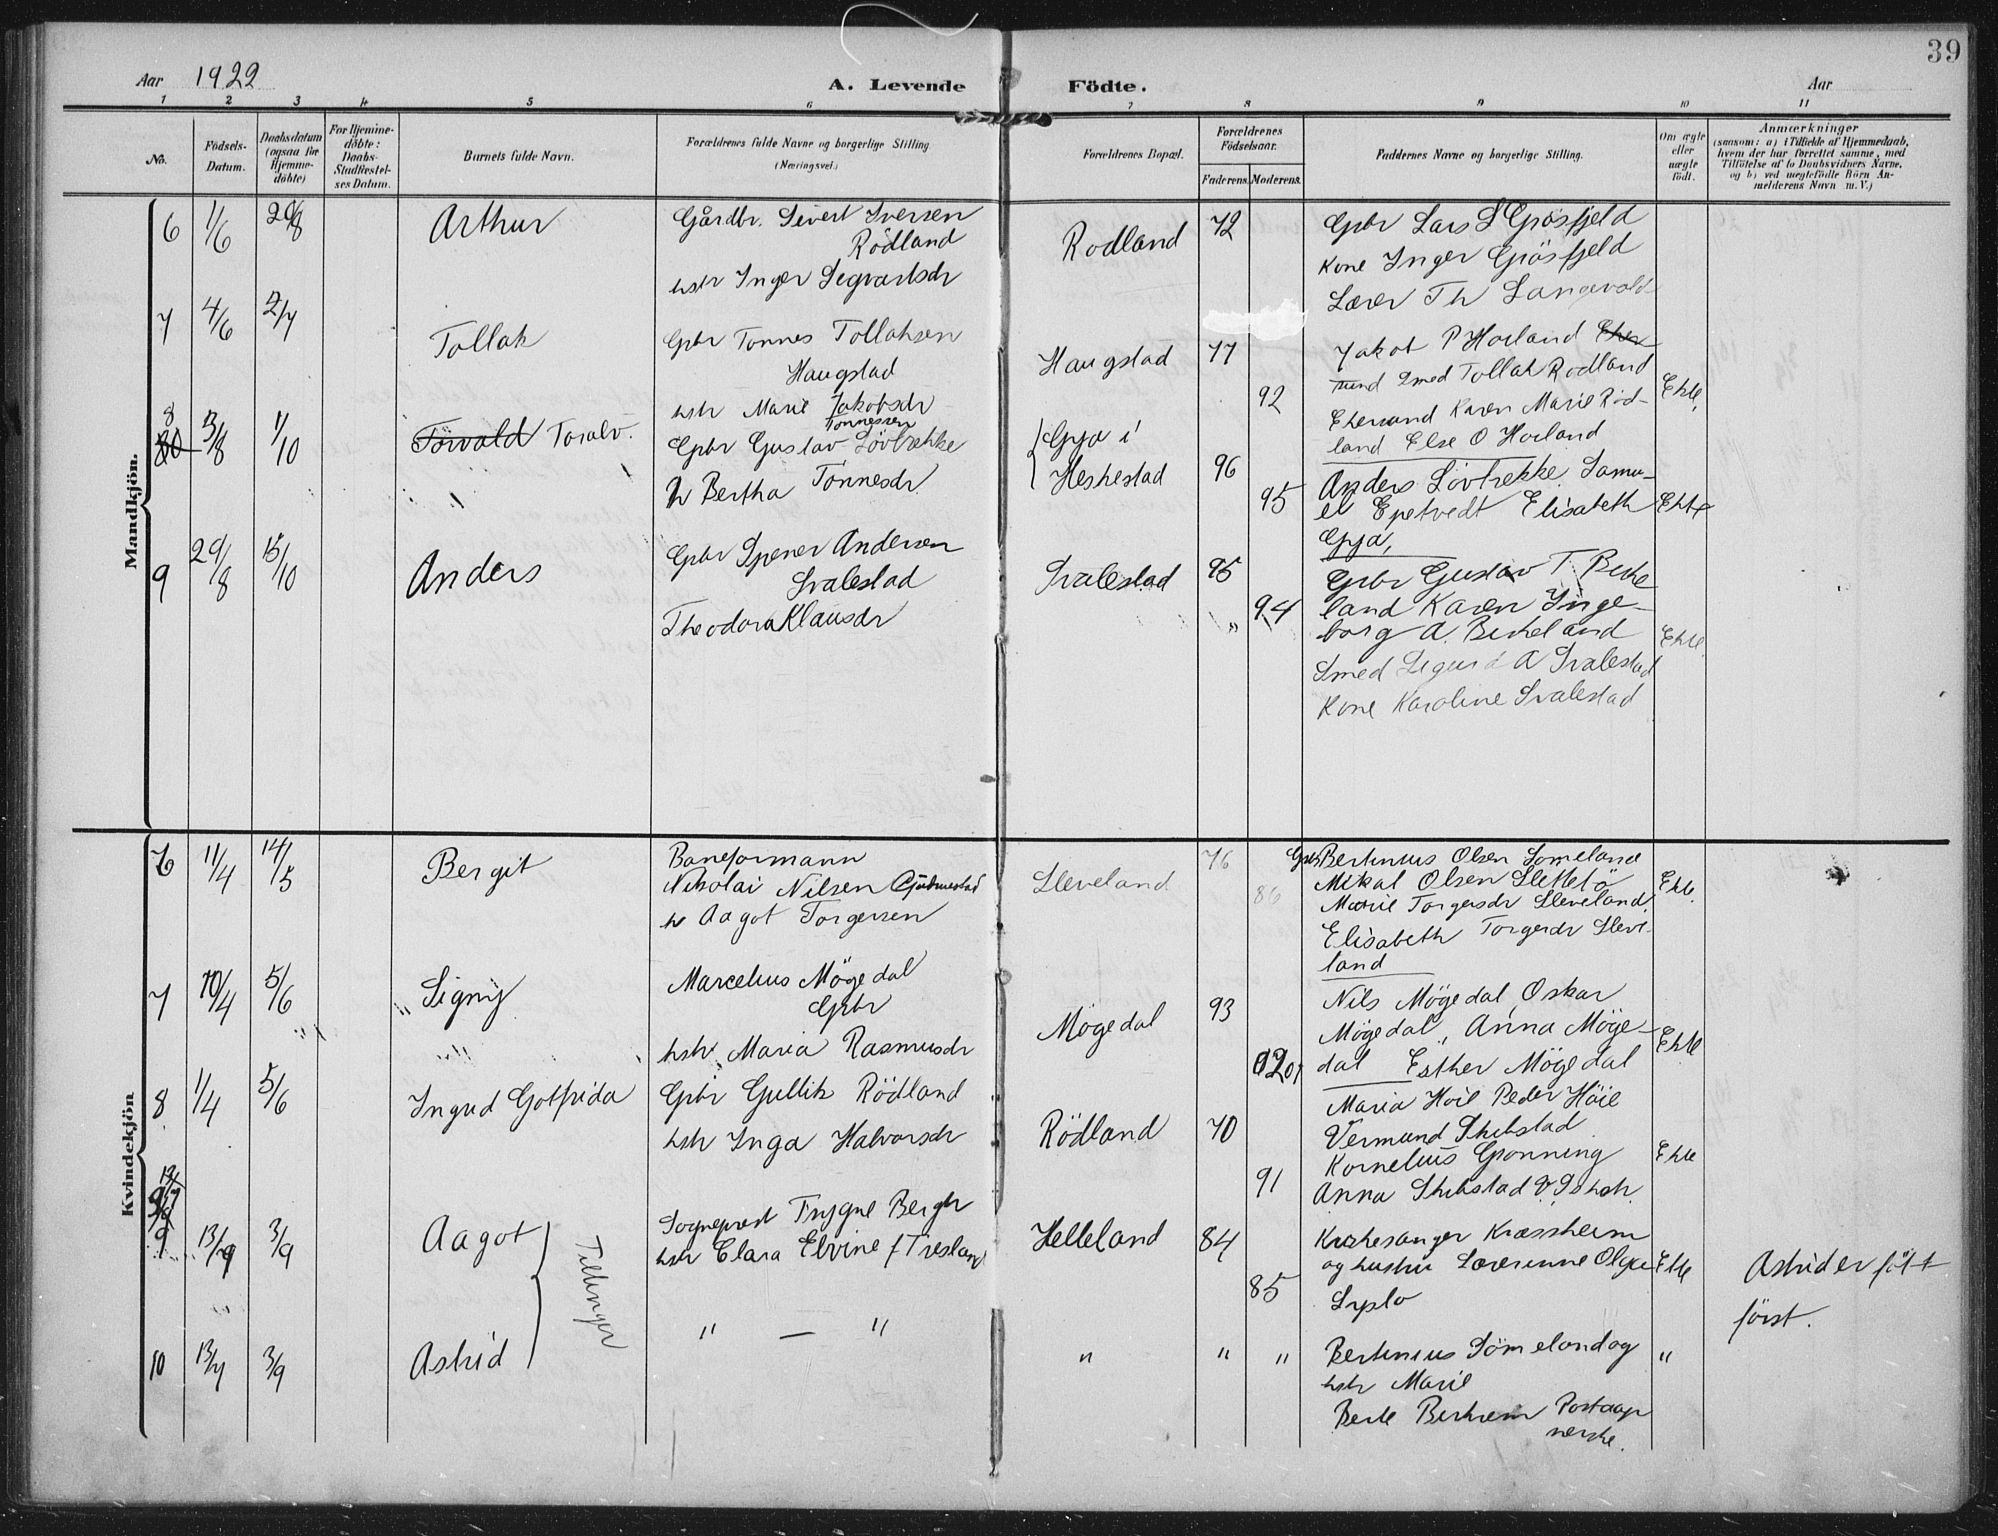 39
Aar 1922
A. Levende Födte.
Aar
1 2 3 4 5 6 7 8 9 10 11
No.
Födsels-
Datum.
Daabsdatum
(ogsaa for
Hjemme-
döbte)
For Hjemme-
döbte:
Daabs-
Stadfæstel-
ses Datum.
Barnets fulde Navn.
Forældrenes fulde Navne og borgerlige Stilling
(Næringsvei.)
Forældrenes Bopæl.
Forældrenes
Födselsaar.
Faderens. Moderens.
Faddernes Navne og borgerlige Stilling.
Om ægte
eller
uægte
født.
Anmærkninger
(saasom: a) i Tilfælde af Hjemmedaab,
hvem der har forrettet samme, med
Tilföielse af to Daabsvidners Navne,
og b) ved uægtefödte Börn An-
melderens Navn m. V.)
Mandkjön.
6 1/6 20/8 Arthur
Gårdbr. Sivert Iversen
Rödland
hstr Inger Segvartsdr
Rodland 72
Gbr Lars S Grösfjeld
Kone Inger Grösfjeld
Lærer Th Langevold
7 4/6 2/7 Tollak
Gbr Tonnes Tollaksen
Haugstad
hstr Marie Jakobsdr
Haugstad 77
92
Jakob P Hovland
mand Smed Tollak Rodland
Ekemand Karen Marie Röd-
land Else O Hovland
Ekte,
8 3/8 1/10 Torvald Toralv.
Tonnessen
Gbr Gustav Lövbrekke
h Bertha Tonnesdr
Gya i
Heskestad
96
95
Anders Lovbrekke. Samu-
el Epetvedt Elisabeth
Gya,
Ekte
9 29/8 15/10 Anders
Gbr Spener Andersen
Svalestad
Theodora Klausdr
Svalestad 95
" 94
Gbr Gustav T. Birke
land Karen Inge-
borg A. Birkeland
Smed Sigurd A Svalestad
Kone Karoline Svalestad
Ekte.
Kvindekjön
6 11/4 14/5 Bergit
Baneformann
Nikolai Nilsen Gjedmestad
h Aagot Torgersen
Sleveland
76
86
Gbr Bertinius Olsen Lomeland
Mikal Olsen Slettebö
Marie Torgersdr Sleveland,
Elisabeth Torgersdr Sleve-
land
Ekte.
7 10/4 5/6 " Signy
Marcelius Mögedal
Gbr
hstr Maria Rasmusdr
Mögedal 93
Nils Mögedal, Oskar
Mögedal, Anna Möge-
dal Esther Mögedal
Ekte
8 1/4 5/6 Ingrid Gotfrida
Gbr Gullik Rödland
hstr Inga Halvorsdr
Rödland 70
91
Maria Höie Peder Höie
Vermund Skibstad
Kornelius Gronning
Anna Skibstad
Ekte
9 3/9 Aagot
Tvillinger
Sogneprest Trygve Bergh
hstr Clara Elvine f Tresland
Helleland 84
85
Kirkesanger Kræssheim
og hustru Lærerinne Olga
Ekte
Astrid er fött
först.
10 13/7 3/9 Astrid
" — "
" " "
Bertinius Sömeland og
hstr Marie
Berte Birkrem Postaap
nerske.
"